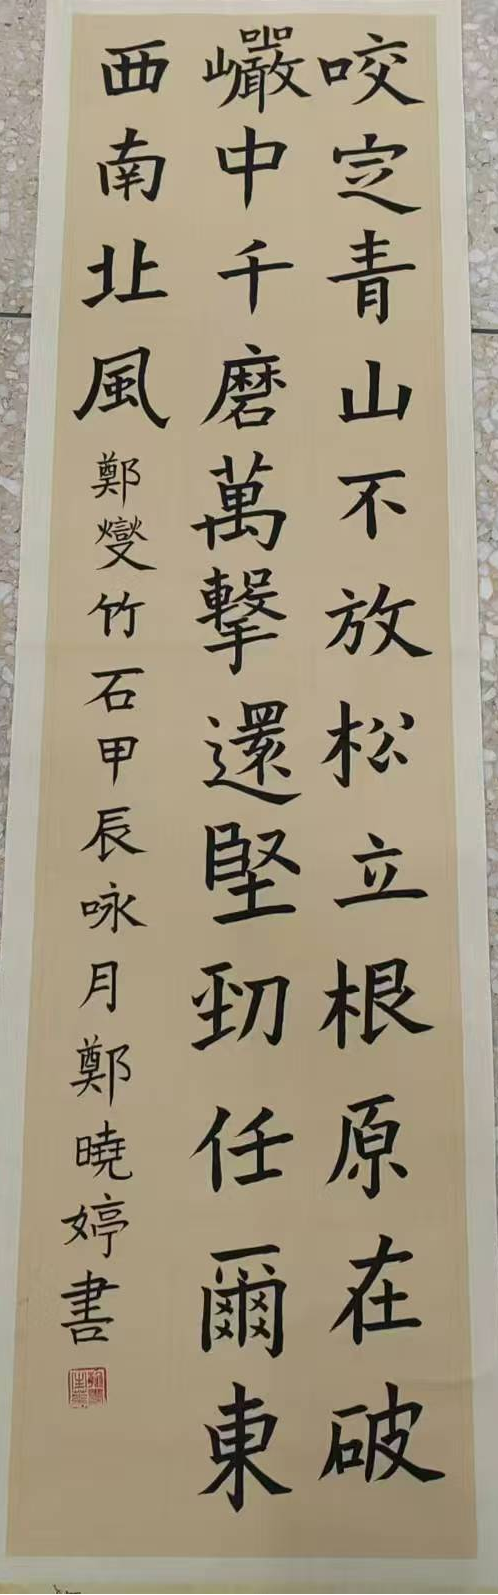 咬定青山不放松立根原在破
巖中千磨萬擊還堅勁任爾東
西南北風
鄭燮竹石甲辰咏月鄭曉婷書